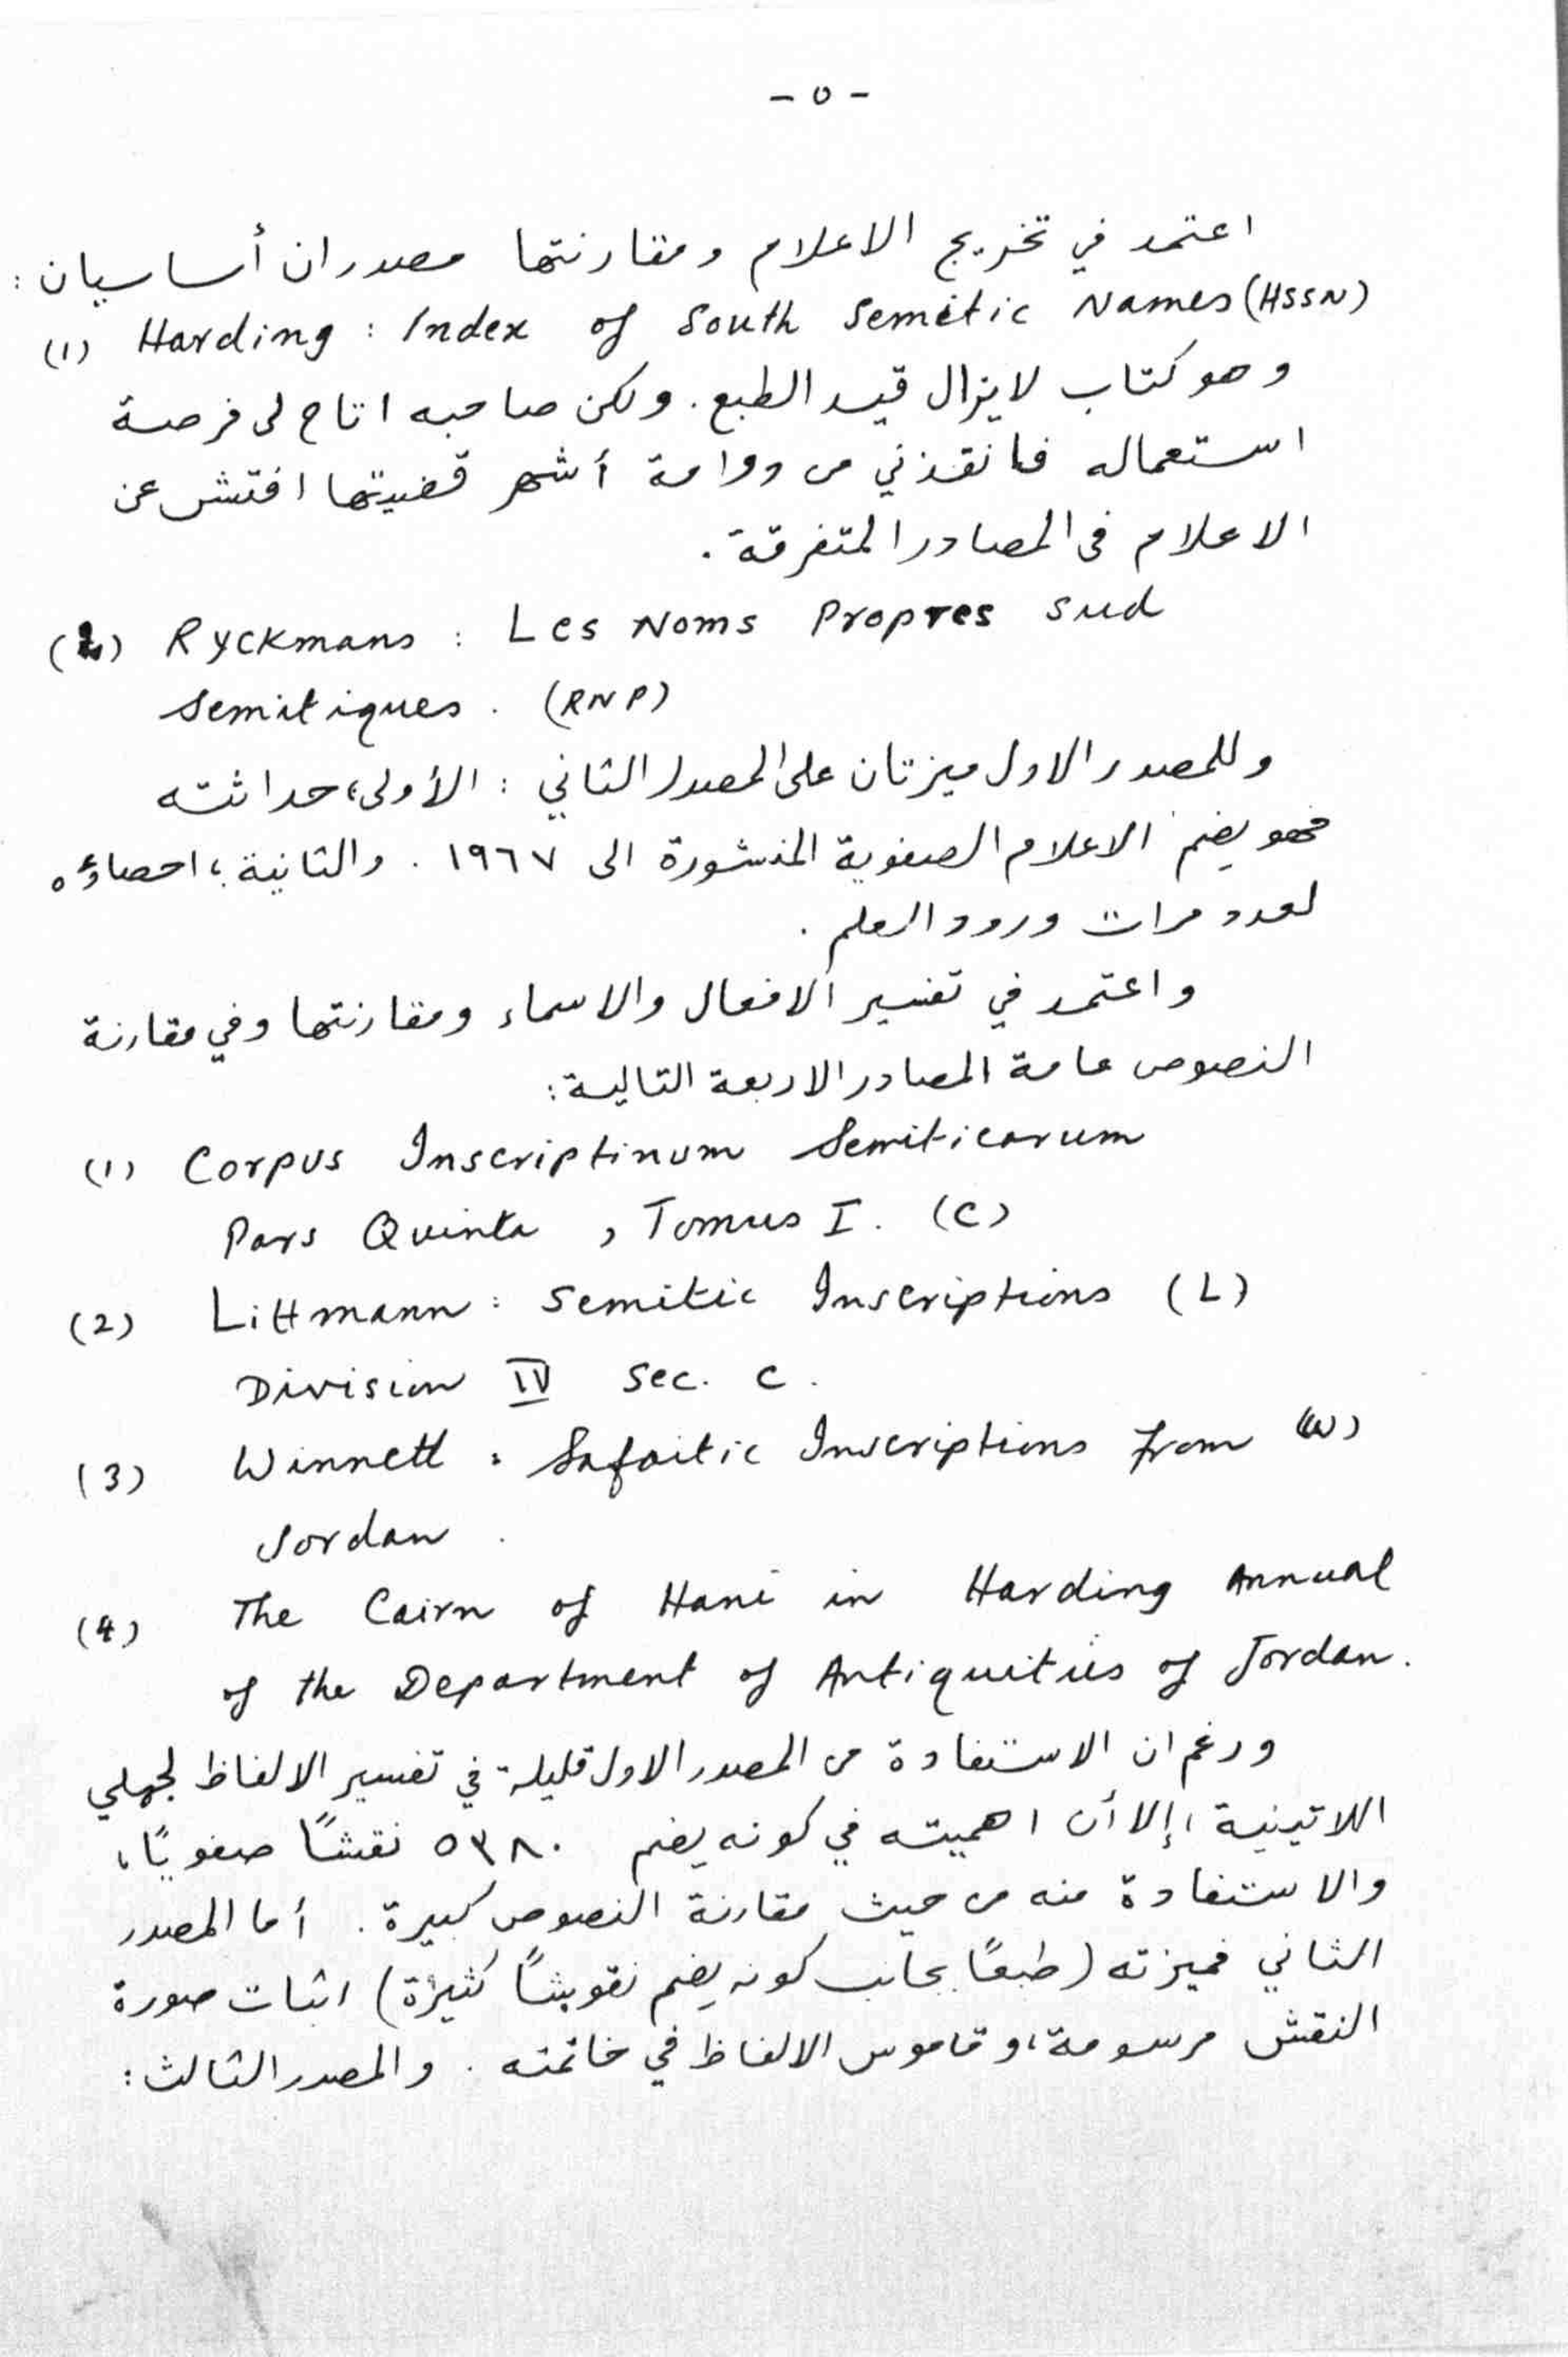 - ٥ -
اعتمد في تخريج الاعلام ومقارنتها مصدران أساسيان :
(1) Harding : Index of South Semitic Names (HSSN)
وهو كتاب لايزال قيد الطبع . ولكن صاحبه اتاح لى فرصة
استعماله فانقذني من دوامة أشهر قضيتها افتش عن
الاعلام فى المصادر المتفرقة .
(2) Ryckmans : Les Noms Propres Sud
Semitiques . (RNP)
وللمصدر الاول ميزتان على المصدر الثاني : الأولى، حداثته
فهو يضم الاعلام الصفوية المنشورة الى ١٩٦٧ . والثانية ، احصاؤه
لعدد مرات ورود العلم .
واعتمد في تفسير الافعال والاسماء ومقارنتها وفي مقارنة
النصوص عامة المصادر الاربعة التالية :
(1) Corpus Inscriptinum Semiticarum
Pars Quinta , Tomus I . (C)
(2) Littmann : Semitic Inscriptions (L)
Division IV Sec. C .
(3) Winnett : Safaitic Inscriptions from (W)
Jordan .
(4) The Cairn of Hani in Harding Annual
of the Department of Antiquities of Jordan .
ورغم ان الاستفادة من المصدر الاول قليلة في تفسير الالفاظ لجهلي
اللاتينية ، إلا أن اهميته في كونه يضم ٥٣٨٠ نقشاً صفوياً ،
والاستفادة منه من حيث مقارنة النصوص كبيرة . أما المصدر
الثاني فميزته (طبعاً بجانب كونه يضم نقوشاً كثيرة) اثبات صورة
النقش مرسومة، وقاموس الالفاظ في خاتمته . والمصدر الثالث :